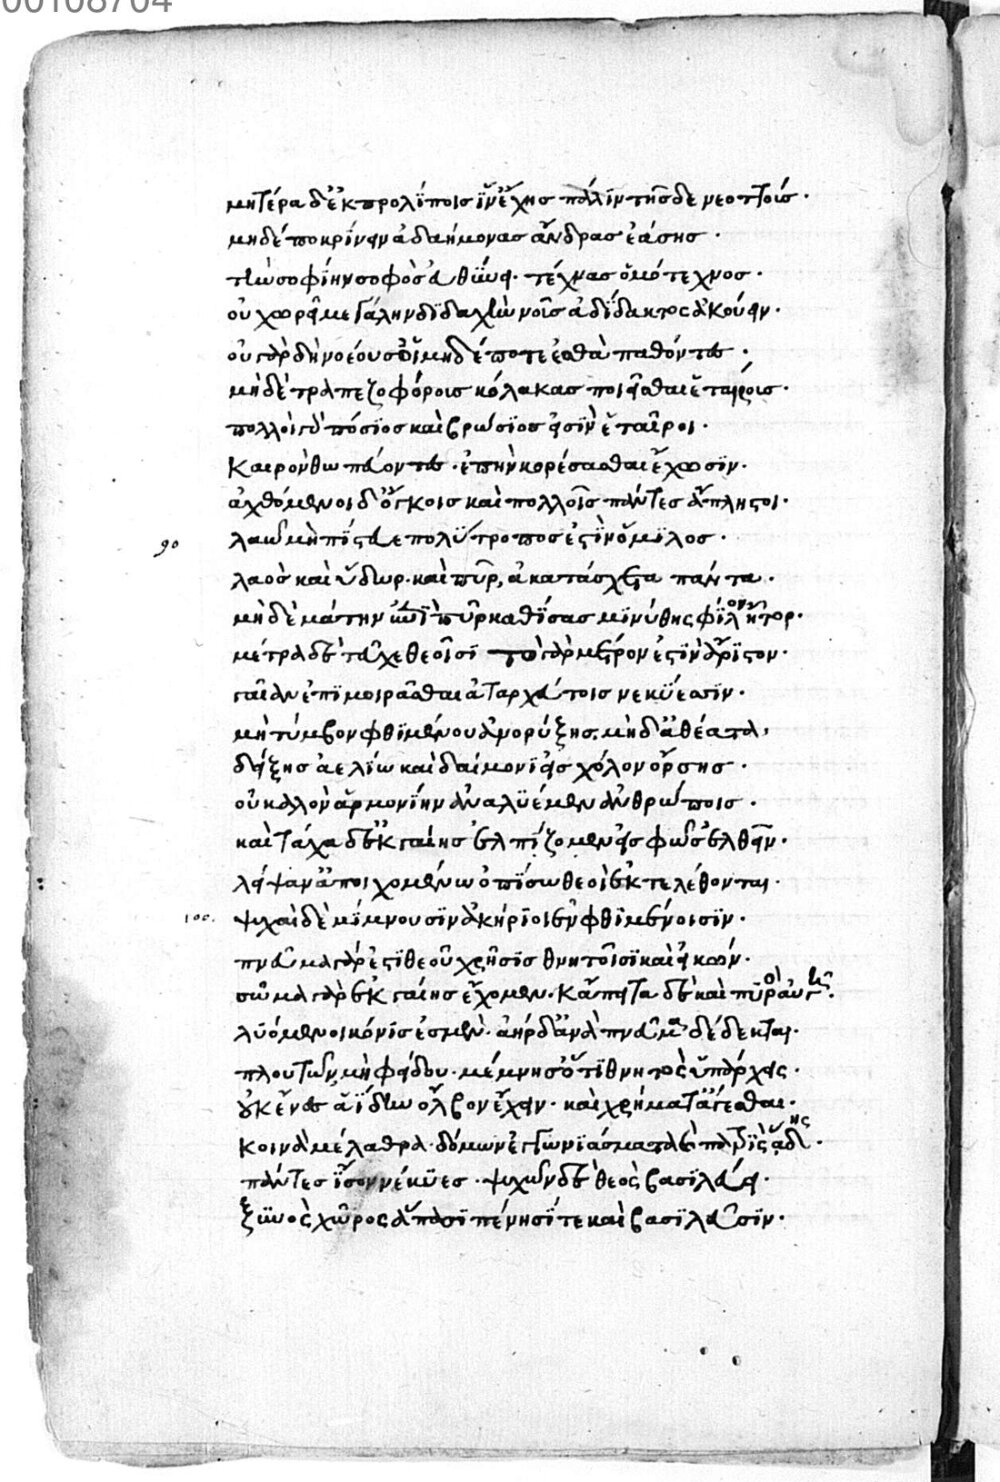 00108704
μητέρα δ' ἐκπρολίποις ἵν' ἔχῃς πάλιν τῆσδε νεοττοίς·
μηδέποτε κρίνειν ἀδαήμονας ἄνδρας ἐάσῃς·
τὴν σοφίην σοφὸς εὐθύνει· τέχνας ὁμότεχνος·
οὐ χωρεῖ μεγάλην διδαχὴν νοῖς ἀδίδακτος ἀκούειν·
οὐ γὰρ δὴ νοέουσ' οἳ μηδέποτε ἐσθλὰ παθόντες·
μὴ δὲ τραπεζοφόροις κόλακας ποιεῖσθαι ἑταίροις·
πολλοὶ γὰρ πόσιος καὶ βρώσιος εἰσὶν ἑταῖροι·
καιρὸν θωπεύοντες· ἐπὴν κορέσασθαι ἔχωσιν·
ἀχθόμενοι δ' ὀλίγοις καὶ πολλοῖς πάντες ἄπληστοι·
90 λαῷ μὴ πίστευε πολύτροπος ἐστὶν ὅμιλος·
λαὸς καὶ ὕδωρ· καὶ πῦρ, ἀκατάσχετα πάντα·
μὴ δὲ μάτην ἐπὶ πῦρ καθίσας μινύθῃς φίλον ἦτορ·
μέτρα δὲ τεῦχε θεοῖσι τὸ γὰρ μέτρον ἐστὶν ἄριστον·
γαῖαν ἐπιμοιρᾶσθαι ἀταρχύτοις νεκύεσσιν·
μὴ τύμβον φθιμένου ἀνορύξῃς· μὴ δ' ἀθέατα,
δείξῃς ἀελίῳ καὶ δαιμονίεις χόλον ὄρσῃς·
οὐ καλὸν ἁρμονίην ἀναλυέμεν ἀνθρώποις·
καὶ τάχα δ' ἐκ γαίης ἐλπίζομεν εἰς φῶς ἐλθεῖν·
λείψαν' ἀποιχομένων ὀπίσω θεοὶ ἐκτελέθονται·
100. ψυχαὶ δὲ μίμνουσιν ἀκήριοι ἐν φθιμένοισιν·
πνεῦμα γάρ ἐστι θεοῦ χρῆσις θνητοῖσι καὶ εἰκών·
σῶμα γὰρ ἐκ γαίης ἔχομεν· κἄπειτα δὲ καὶ πρὸς αὖ γῆν·
λυόμενοι κόνις ἐσμὲν· ἀὴρ δ' ἀνὰ πνεῦμα δέδεκται·
πλουτῶν μὴ φείδου· μέμνησ' ὅτι θνητὸς ὑπάρχεις·
οὐκ ἔνεστ' ἀΐδην ὄλβον ἔχειν· καὶ χρήματ' ἄγεσθαι·
κοινὰ μέλαθρα· δόμων
πάντες ἴσον νέκυες· ψυχῶν δὲ θεὸς βασιλεύει·
ξυνὸς χῶρος ἅπασι πένησί τε καὶ βασιλεῦσιν·